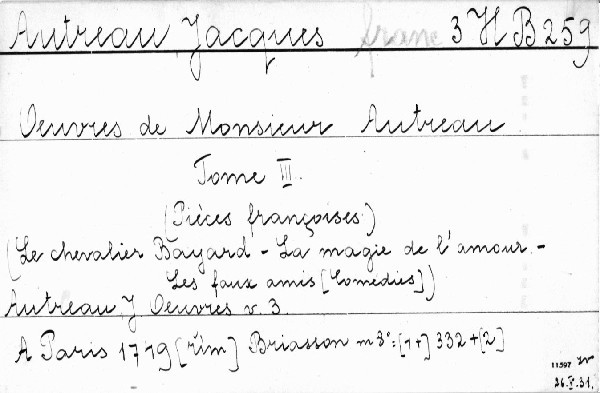 Autreau Jacques franc 3 H B 259
Oeuvres de Monsieur Autreau
Tome III.
(Pièces françoises.)
(Le chevalier Bayard - La magie de l'amour. -
Les faux amis [Comédies])
Autreau, J. Oeuvres v. 3.
A Paris 1749 [řím] Briasson m 8°: [1+] 332 + [2]
11597
26.V.31.